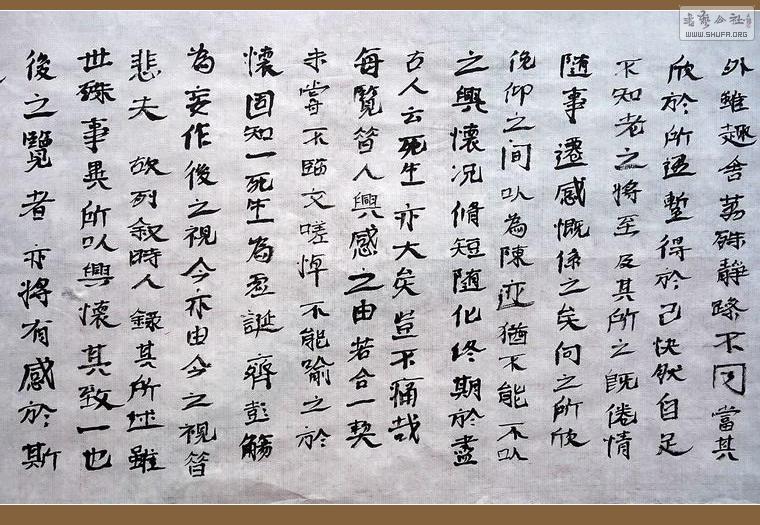 外雖趣舍萬殊靜躁不同當其
欣於所遇蹔得於己快然自足
不知老之將至及其所之既倦情
隨事遷感慨係之矣向之所欣
俛仰之間以為陳迹猶不能不以
之興懷況脩短隨化終期於盡
古人云死生亦大矣豈不痛哉
每覽昔人興感之由若合一契
未嘗不臨文嗟悼不能喻之於
懷固知一死生為虛誕齊彭殤
為妄作後之視今亦由今之視昔
悲夫故列敘時人錄其所述雖
世殊事異所以興懷其致一也
後之覽者亦將有感於斯
书艺公社
WWW.SHUFA.ORG